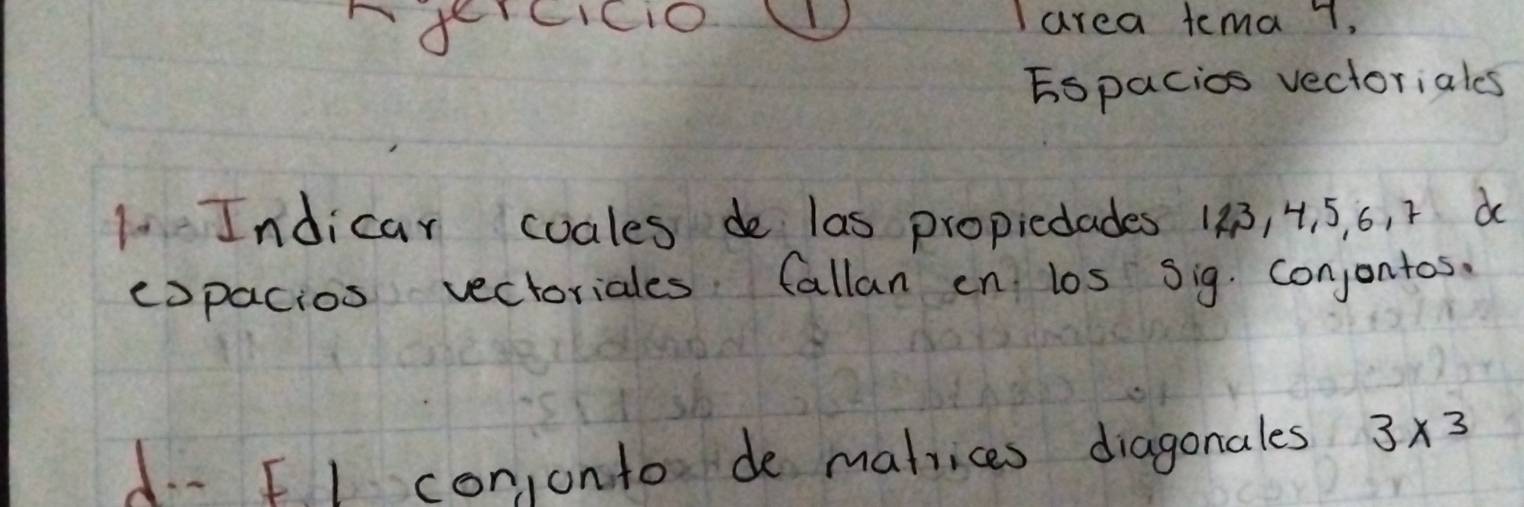 Ejercicio 1
Tarea tema 4.
Espacios vectoriales
1.- Indicar cuales de las propiedades 1,2,3,4,5,6,7 de
espacios vectoriales fallan en los sig. conjontos.
d.- El conjonto de matrices diagonales 3x3